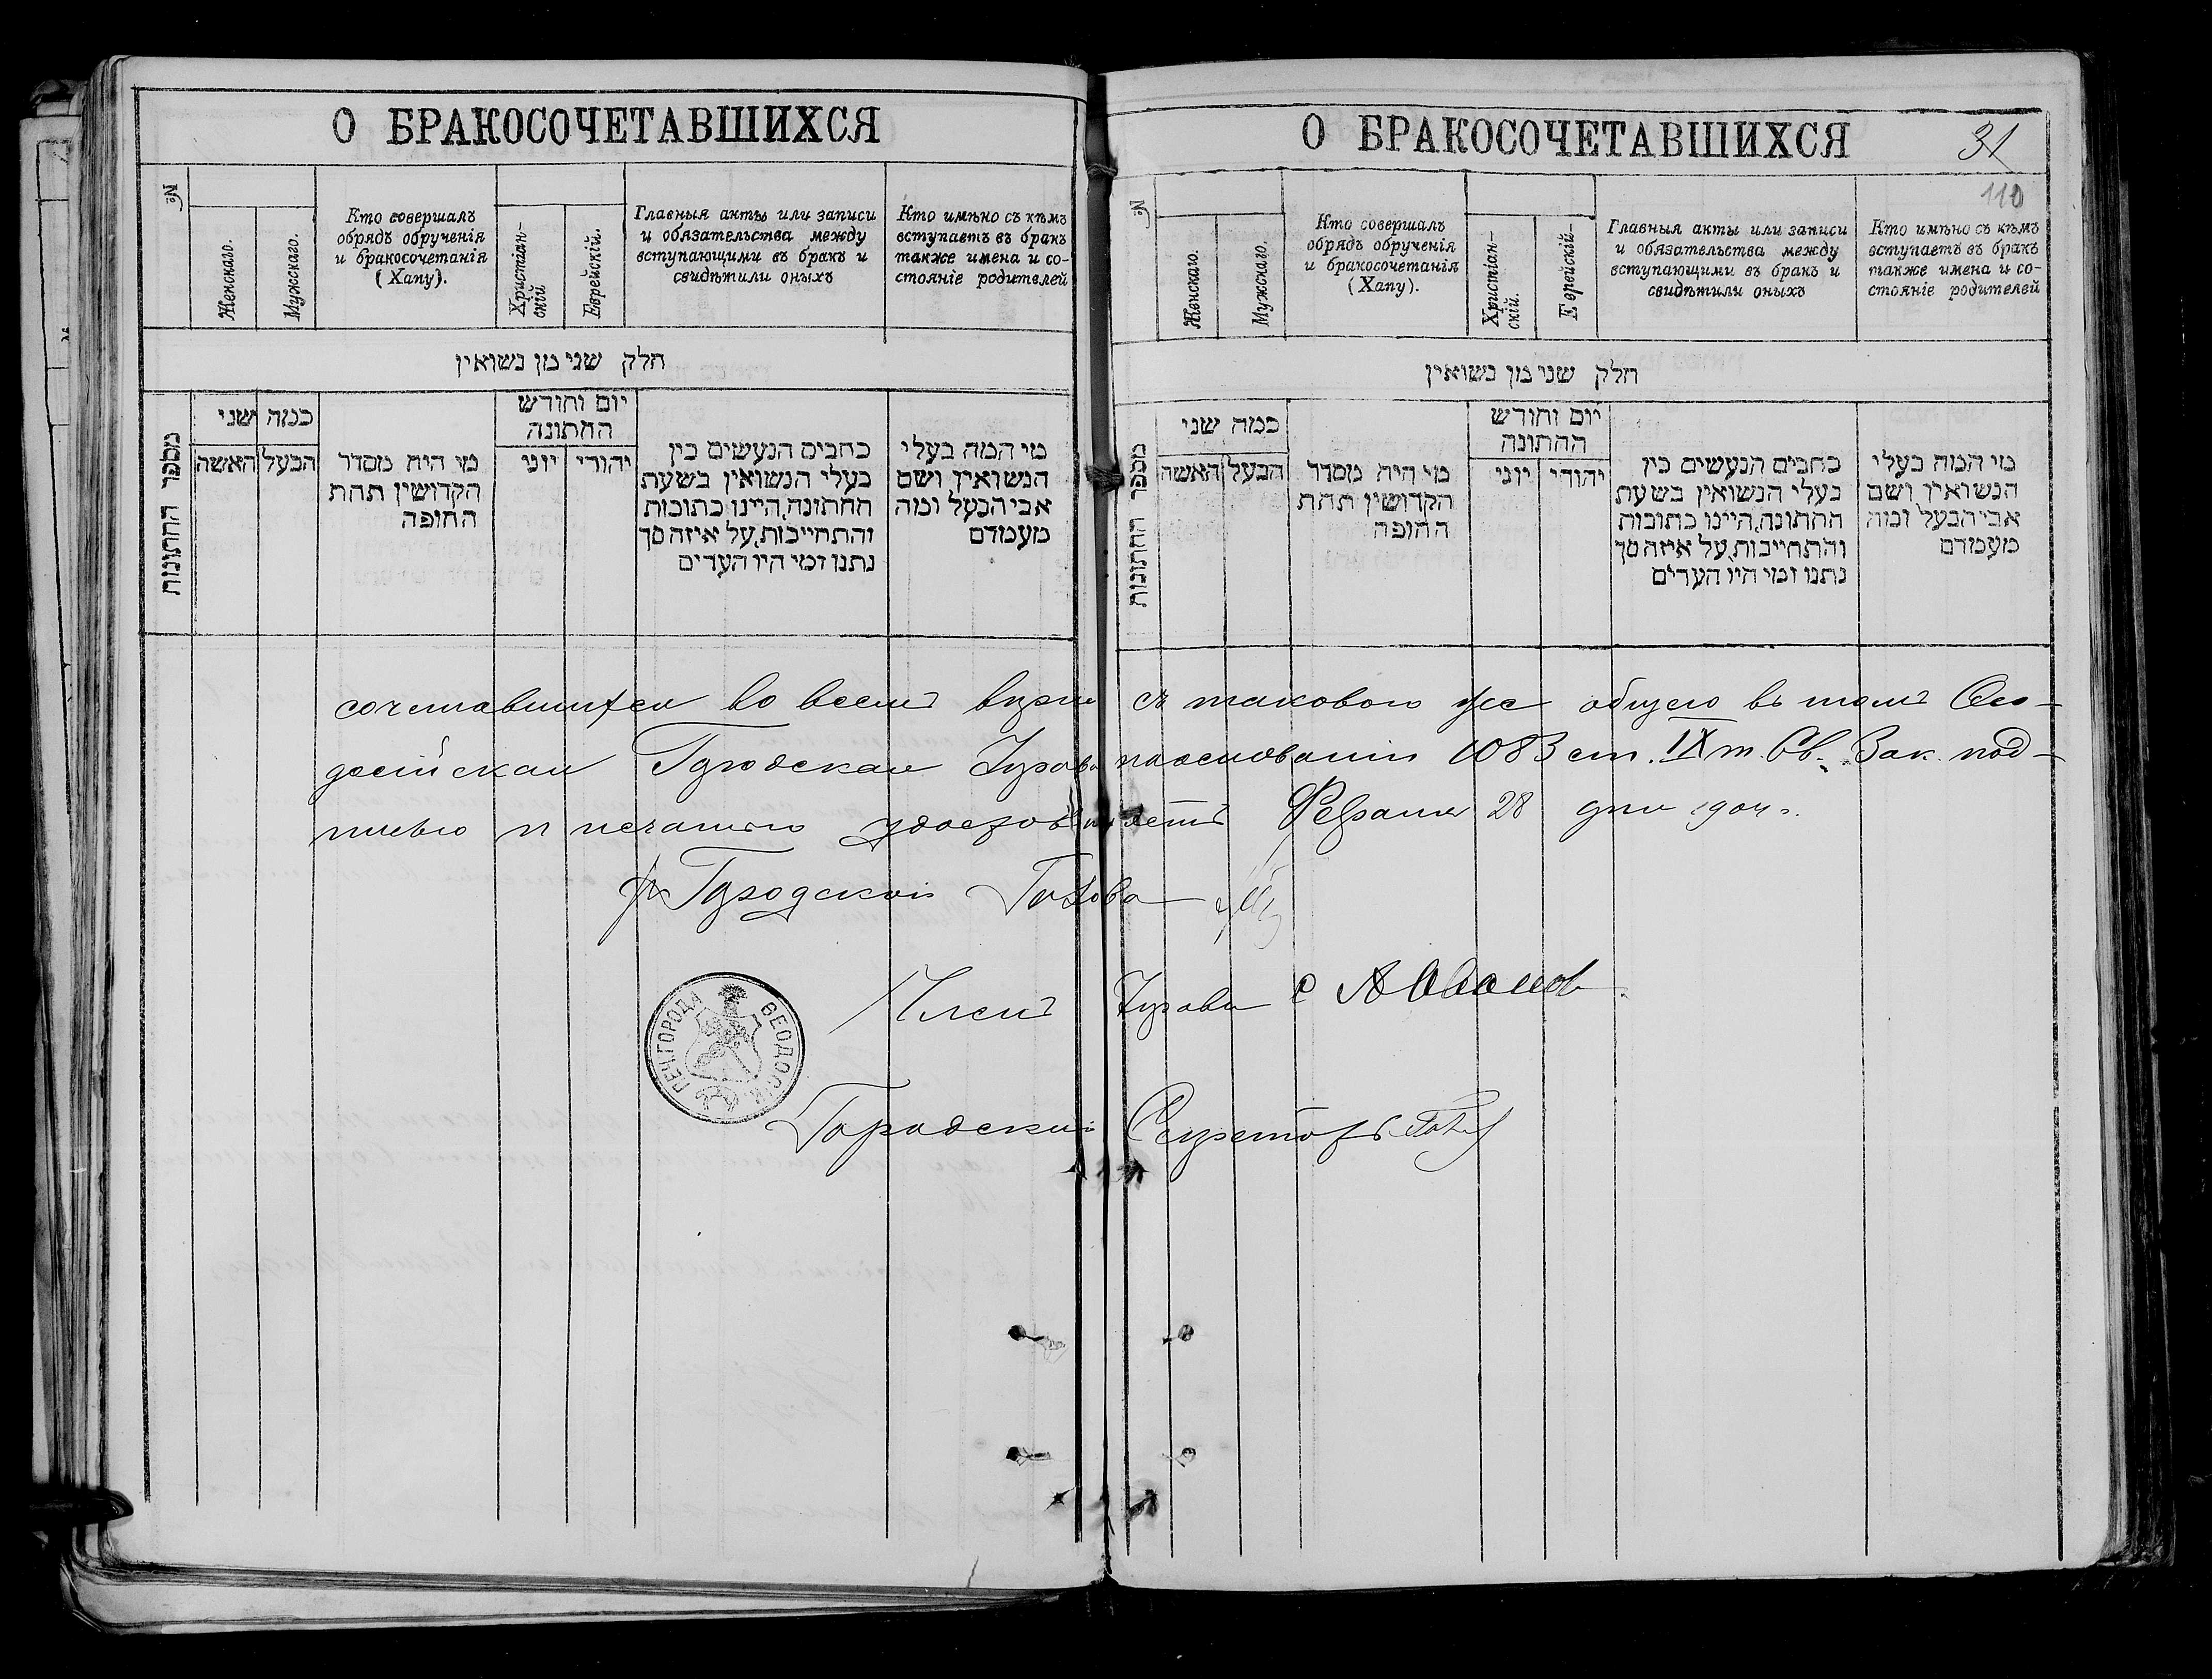 О БРАКОСОЧЕТАВШИХСЯ
№
Женскаго.
Мужскаго.
Кто совершалъ
обрядъ обрученія
и бракосочетанія
(Хапу).
Христіан-
скій
Еврейскій.
Главныя акты или записи
и обязательства между
вступающими въ бракъ и
свидѣтили оныхъ
Кто имѣно съ кѣмъ
вступаетъ въ бракъ
также имена и со-
стояніе родителей
חלק שני מן נשואין
מספר החתונות
כמה שני
הבעל האשה
מי היה מסדר
הקדושין תחת
החופה
יום וחודש
החתונה
יהודי יוני
כתבים הנעשים בין
בעלי הנשואין בשעת
החתונה, היינו כתובות
והתחייבות, על איזה סך
נתנו ומי היו העדים
מי המה בעלי
הנשואין ושם
אבי הבעל ומה
מעמדם
О БРАКОСОЧЕТАВШИХСЯ
31
110
№
Женскаго.
Мужскаго.
Кто совершалъ
обрядъ обрученія
и бракосочетанія
(Хапу).
Христіан-
скій.
Еврейскій-
Главныя акты или записи
и обязательства между
вступающими въ бракъ и
свидѣтили оныхъ
Кто имѣно съ кѣмъ
вступаетъ въ бракъ
также имена и со-
стояніе родителей
חלק שני מן נשואין
מספר החתונות
כמה שני
הבעל האשה
מי היה מסדר
הקדושין תחת
החופה
יום וחודש
החתונה
יהודי יוני
כתבים הנעשים בין
בעלי הנשואין בשעת
החתונה, היינו כתובות
והתחייבות, על איזה סך
נתנו ומי היו העדים
מי המה בעלי
הנשואין ושם
אבי הבעל ומה
מעמדם
сочетавшихся во всемъ вѣрны съ таковою же общею въ томъ Ѳео-
досійская Городская Управа на основаніи 1083 ст. IX т. Св. Зак. под-
писью и печатью удостовѣряетъ Февраля 28 дня 1904 г.
Городской Голова
Членъ Управы
ПЕЧ. ГОРОДА ѲЕОДОСІИ
Городской Секретарь